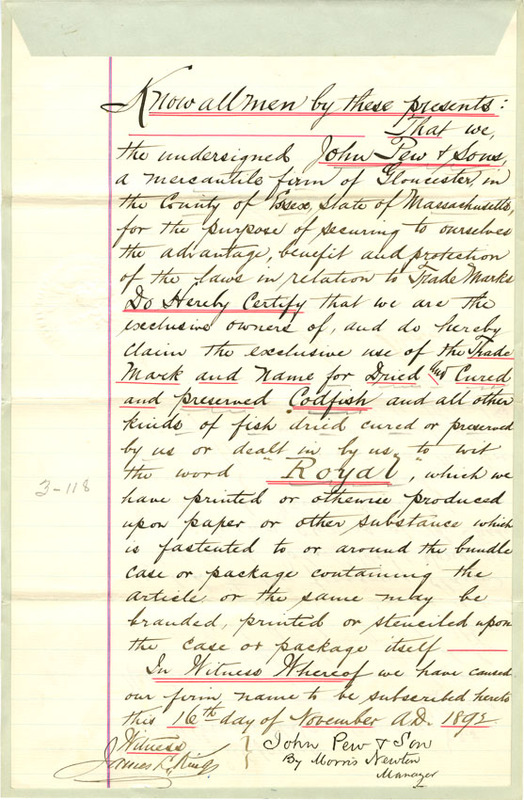 Know all men by these presents:
That we,
the undersigned John Pew & Sons,
a mercantile firm of Gloucester, in
the County of Essex, State of Massachusetts,
for the purpose of securing to ourselves
the advantage, benefit and protection
of the laws in relation to Trade Marks
Do Hereby Certify that we are the
exclusive owners of, and do hereby
claim the exclusive use of the Trade
Mark and Name for Dried and Cured
and preserved Codfish and all other
kinds of fish dried cured or preserved
by us or dealt in by us, to wit
the word "Royal", which we
3-118
have printed or otherwise produced
upon paper or other substance which
is fastented to or around the bundle
case or package containing the
article, or the same may be
branded, printed or stenciled upon
the case or package itself
In Witness Whereof we have caused
our firm name to be subscribed hereto
this 16th day of November A.D. 1892
Witness
James R. King
John Pew & Son
By Morris Newton
Manager